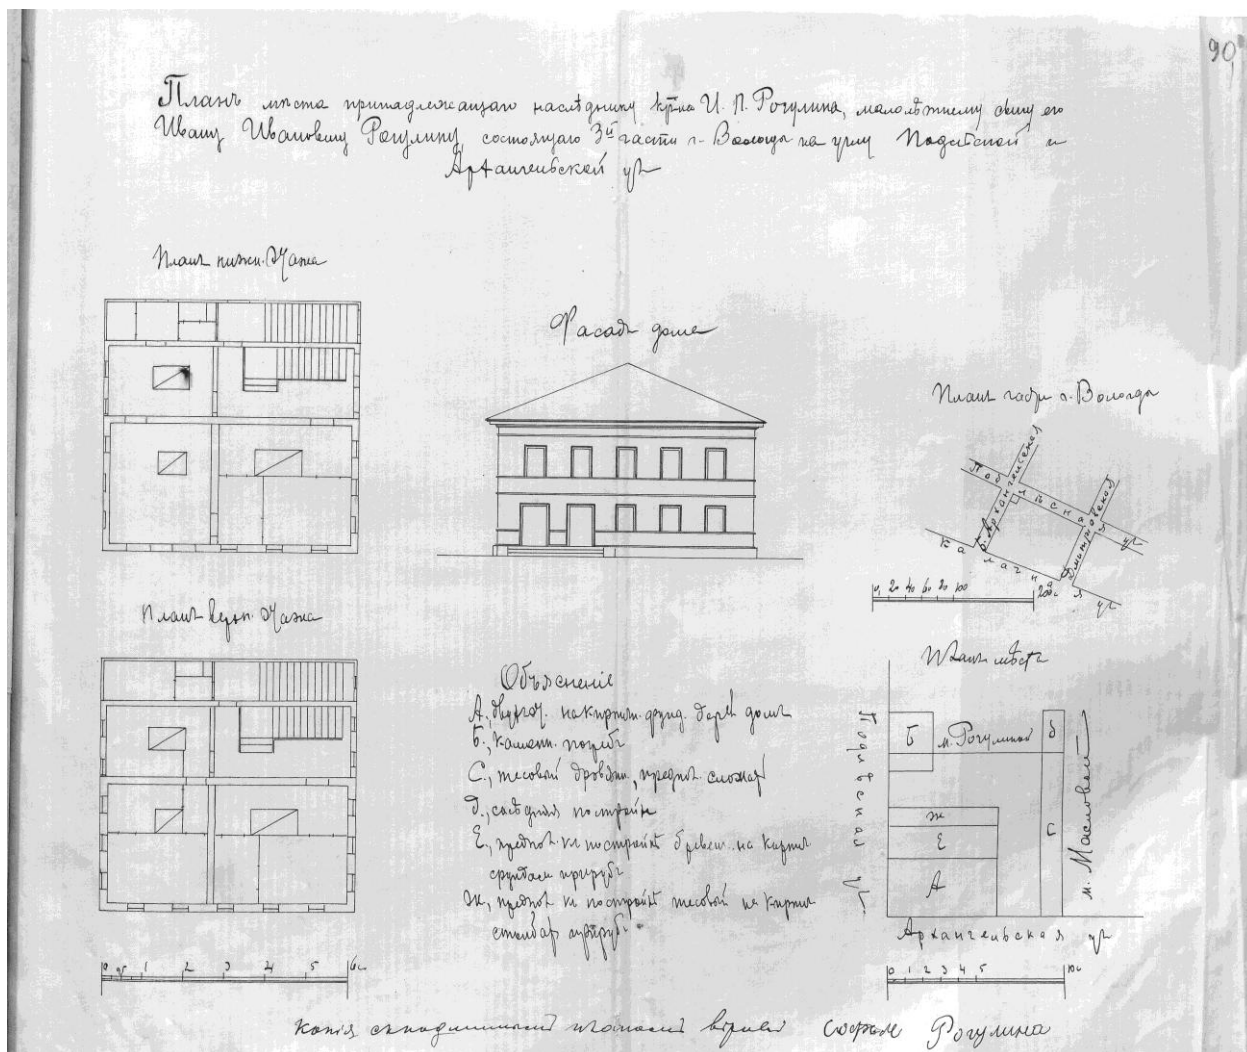 90
Планъ мѣста принадлежащаго наслѣднику купца И. П. Рогулина, малолѣтнему сыну его
Ивану Ивановичу Рогулину, состоящаго 3й части г. Вологды на углу Подлѣсной и
Архангельской ул
Планъ нижн. этажа
Фасадъ дома
Планъ части г. Вологды
Подлѣсная ул
Б. Архангельская
Дмитріевская
Калачная ул
0 20 40 60 80 100 200с
Планъ верхн. этажа
Объясненіе
А, двухэт. на кирпич. фунд. дерев домъ
Б, каменн. погребъ
С, тесовый дровяни, предпол сломат
д, сосѣдняя постройка
Е, предпол. къ постройкѣ бревен. на кирпич
фундам прирубъ
Ж, предпол къ постройкѣ тесовый на кирпич
столбах
Планъ мѣста
Б м. Рогулиной д
ж
Е
А
С
Подлѣсная ул
м. Масловой
Архангельская ул
0 1 2 3 4 5 6с
0 1 2 3 4 5 10с
Копія съ подлиннымъ планомъ вѣрна Рогулина